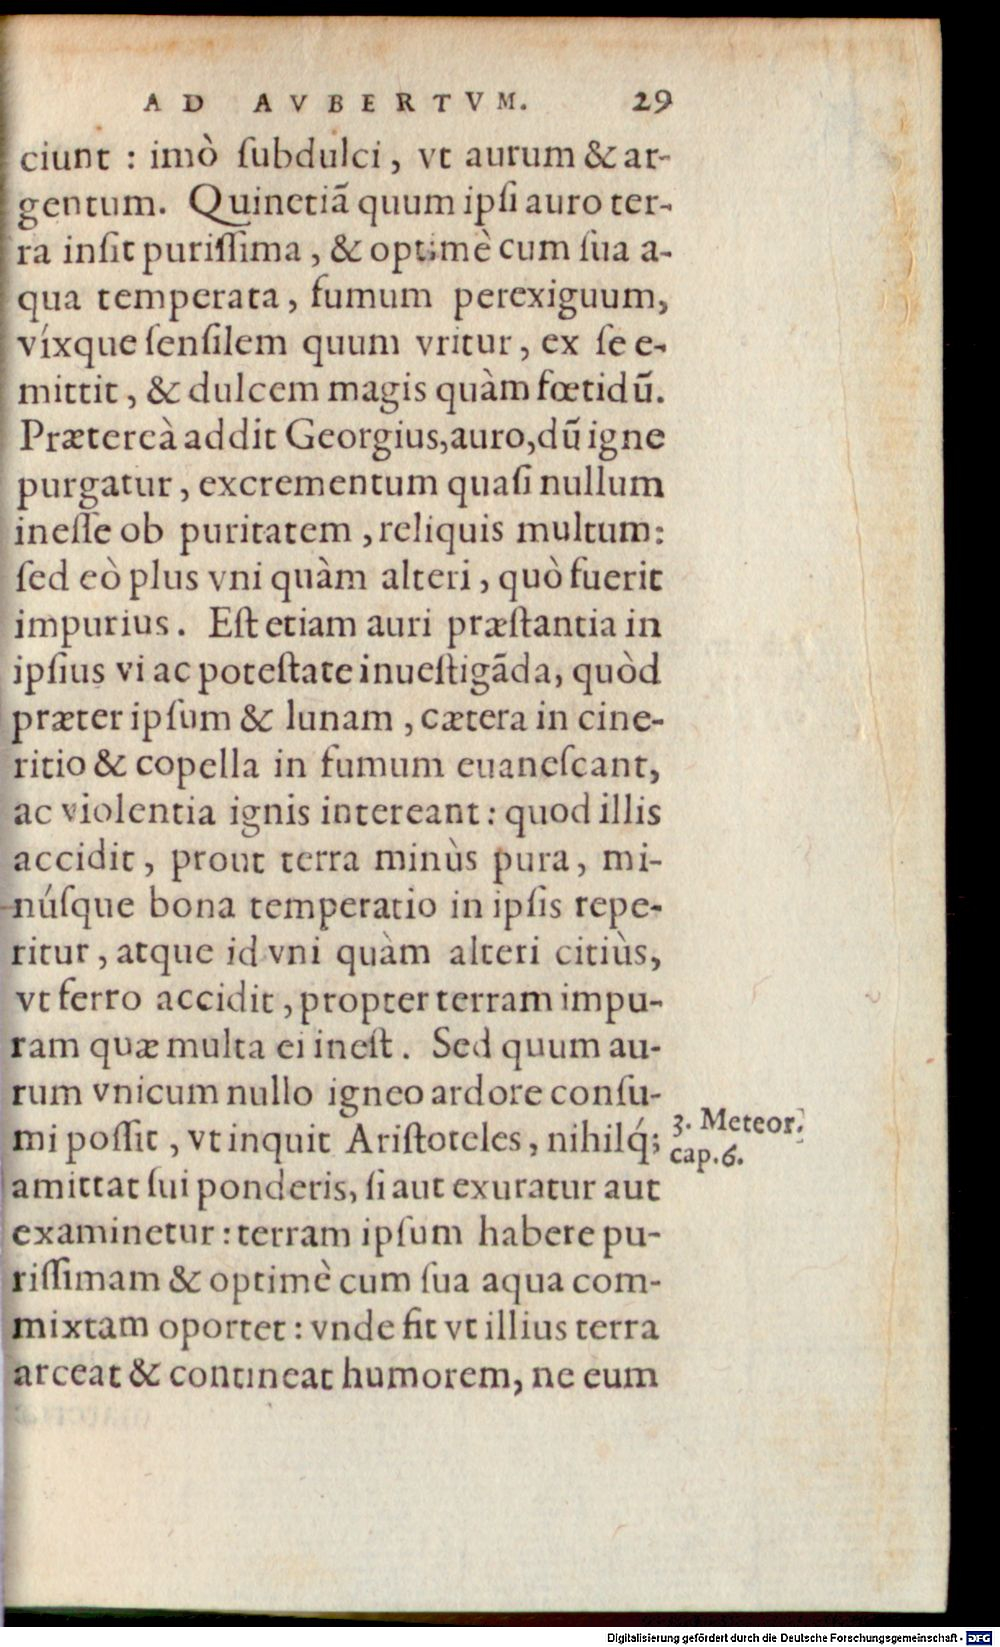 AD AVBERTVM. 29
ciunt : imò ſubdulci, vt aurum & ar-
gentum. Quinetiã quum ipſi auro ter-
ra inſit puriſſima, & optimè cum ſua a-
qua temperata, fumum perexiguum,
víxque ſenſilem quum vritur, ex ſe e-
mittit, & dulcem magis quàm fœtidũ.
Prætereà addit Georgius, auro, dũ igne
purgatur, excrementum quaſi nullum
ineſſe ob puritatem, reliquis multum:
ſed eò plus vni quàm alteri, quò fuerit
impurius. Eſt etiam auri præſtantia in
ipſius vi ac poteſtate inueſtigãda, quòd
præter ipſum & lunam, cætera in cine-
ritio & copella in fumum euaneſcant,
ac violentia ignis intereant: quod illis
accidit, prout terra minùs pura, mi-
núſque bona temperatio in ipſis repe-
ritur, atque id vni quàm alteri citiùs,
vt ferro accidit, propter terram impu-
ram quæ multa ei ineſt. Sed quum au-
rum vnicum nullo igneo ardore conſu-
mi poſſit, vt inquit Ariſtoteles, nihilq́;
3. Meteor.
cap.6.
amittat ſui ponderis, ſi aut exuratur aut
examinetur: terram ipſum habere pu-
riſſimam & optimè cum ſua aqua com-
mixtam oportet: vnde fit vt illius terra
arceat & contineat humorem, ne eum
Digitalisierung gefördert durch die Deutsche Forschungsgemeinschaft - DFG